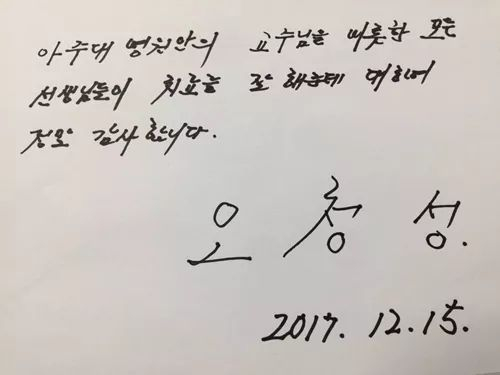 아주대 병원안의 교수님을 비롯한 모든
선생님들이 치료를 잘 해준데 대하여
정말 감사합니다.
오청성.
2017. 12. 15.